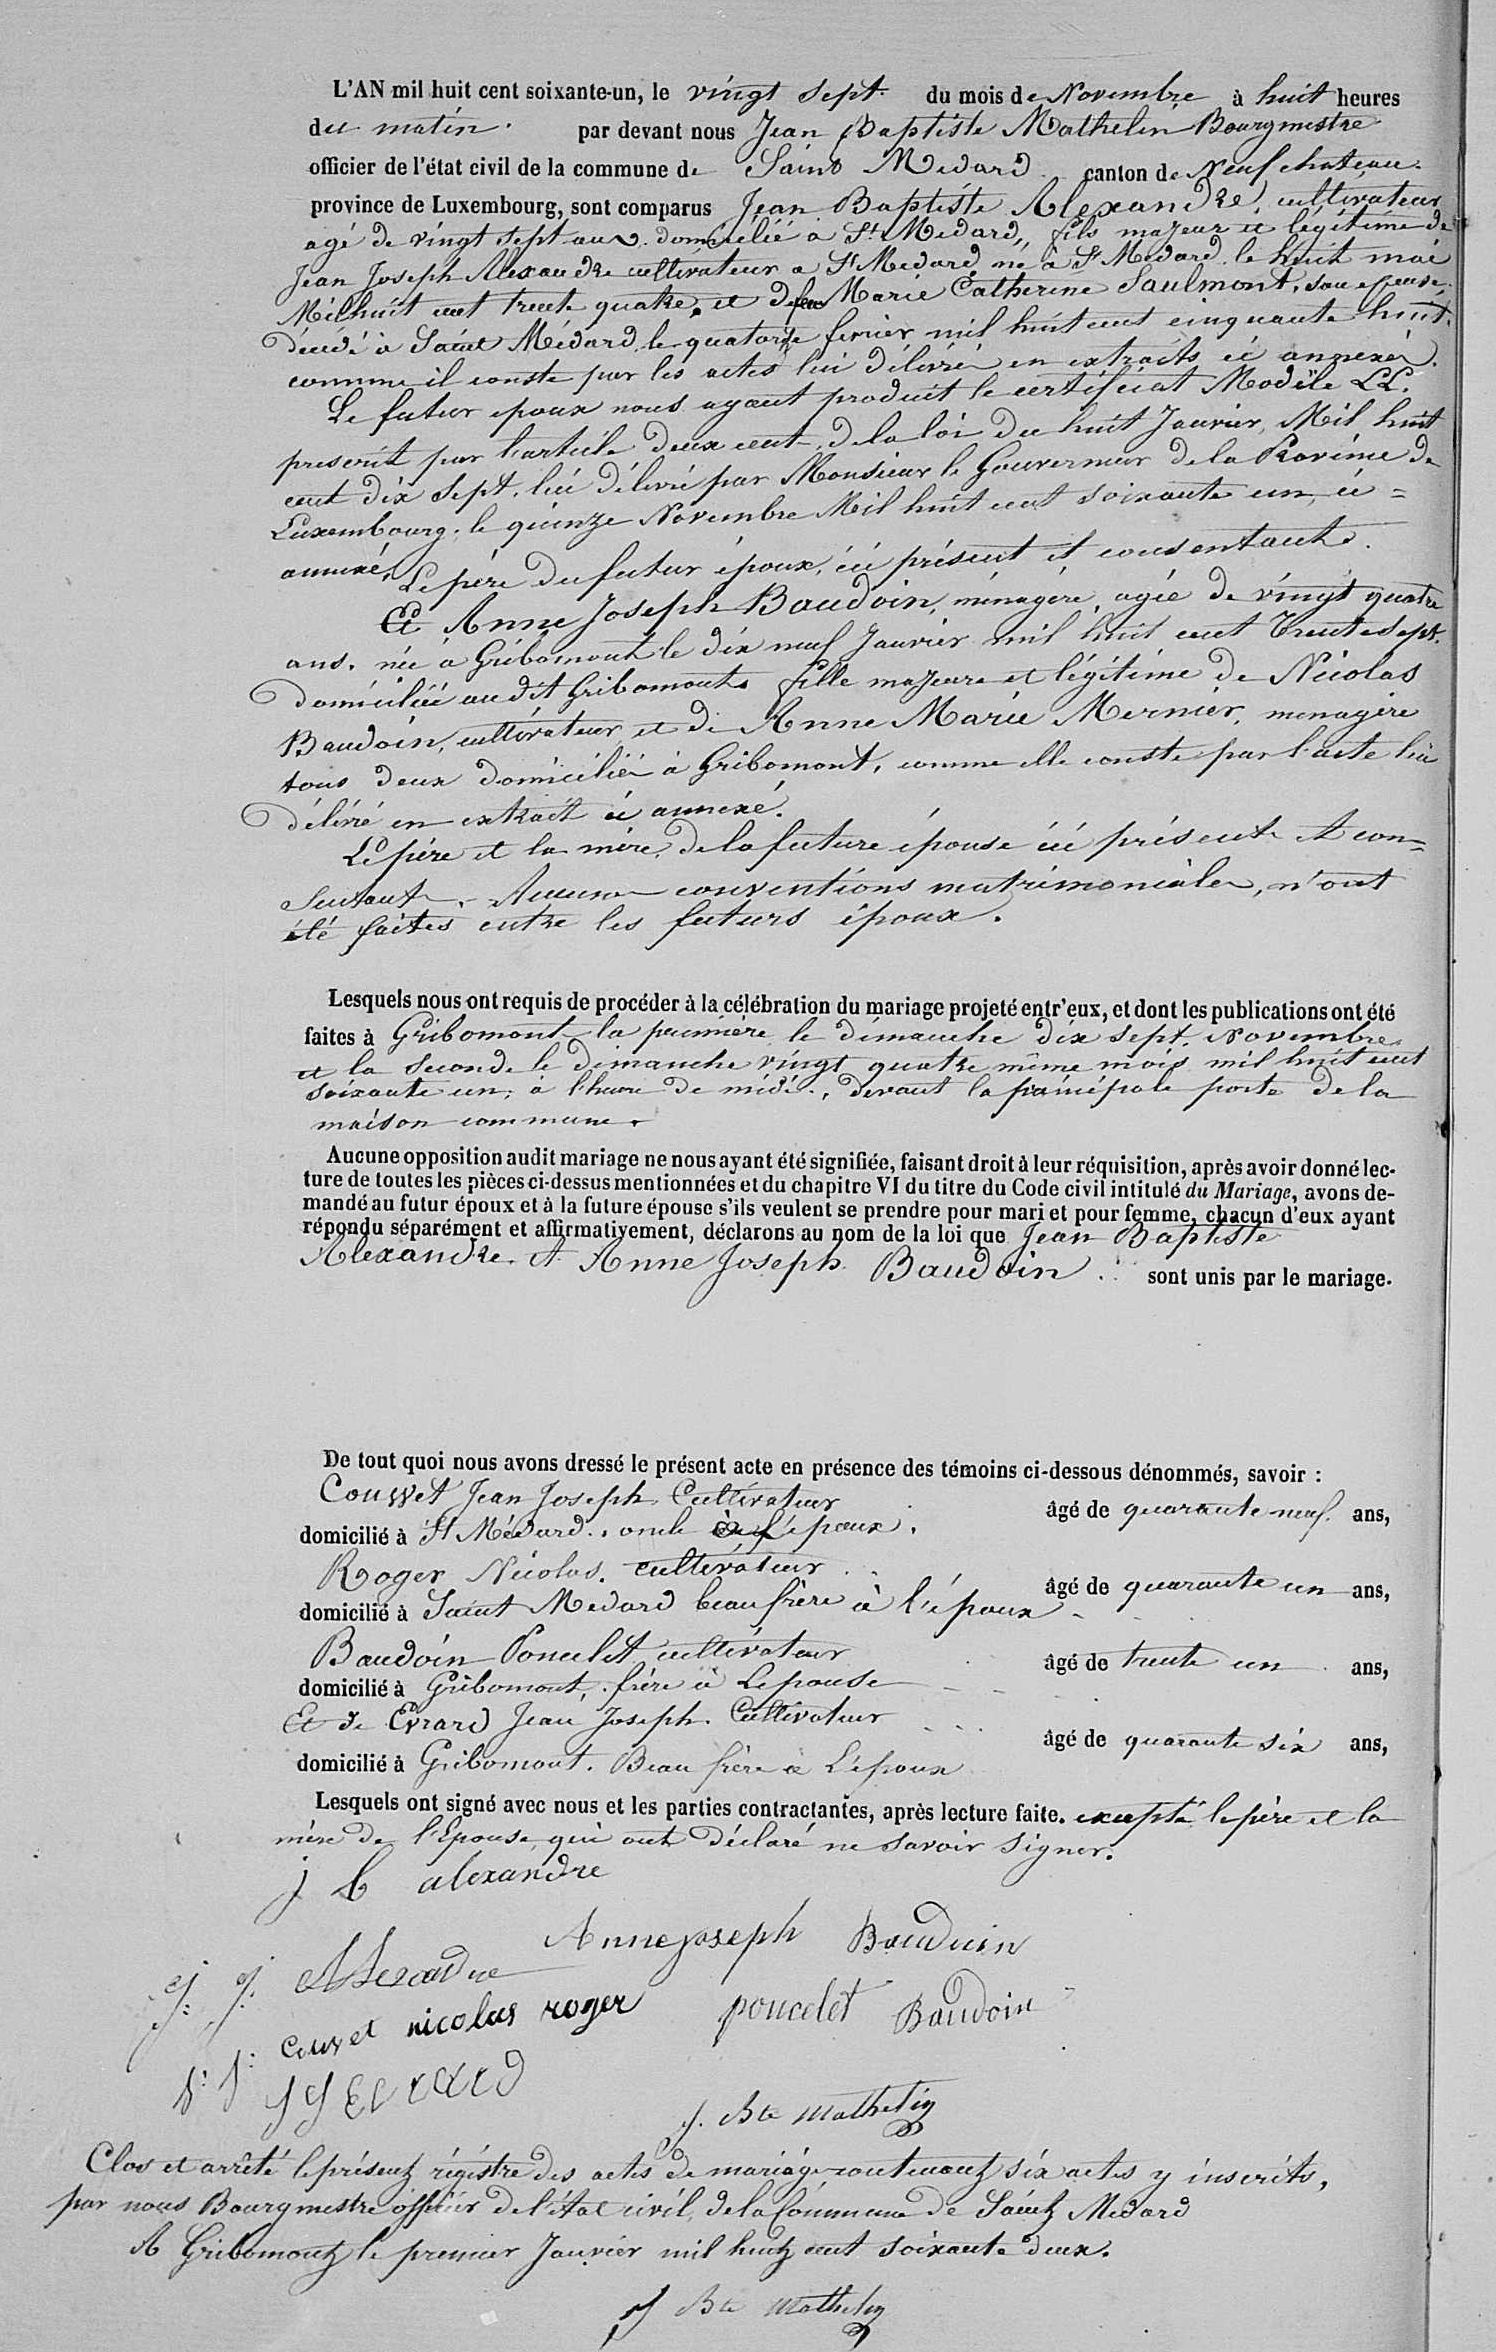 L'AN mil huit cent soixante-un, le vingt sept du mois de Novembre à huit heures
du matin. par devant nous Jean Baptiste Mathelin Bourgmestre
officier de l'état civil de la commune de Saint Medard canton de Neufchateau.
province de Luxembourg, sont comparus Jean Baptiste Alexandre, cultivateur
agé de vingt sept ans. domicilié à St Medard, fils majeur et légitime de
Jean Joseph Alexandre cultivateur a St Medard, né à St Medard le huit mai
Mil huit cent trente quatre, et de feu Marie Catherine Saulmont, son epouse,
décédé à Saint Médard, le quatorze fevrier mil huit cent cinquante huit.
comme il conste par les actes lui délivrés en extraits ci annexés.
Le futur epoux nous ayant produit le certificat Modèle LL.
prescrit par l'article deux cent, de la loi du huit Janvier, Mil huit
cent dix sept, lui délivré par Monsieur le Gouverneur de la Province de
Luxembourg, le quinze Novembre Mil huit cent soixante un, ci =
annexé, Le père du futur époux, ici présent et consentant.
Et Anne Joseph Baudoin, ménagère, agée de vingt quatre
ans. née à Gribomont le dix neuf Janvier mil huit cent trente sept.
domiciliée au dit Gribomont, fille majeure et légitime de Nicolas
Baudoin, cultivateur et de Anne Marie Mernier, menagère
tous deux domiciliés à Gribomont, comme elle conste par l'acte lui
délivré en extrait ci annexé.
Le père et la mère, de la future épouse ici présents et con=
sentants. Aucunes conventions matrimoniales, n'ont
été faites entre les futurs époux.
Lesquels nous ont requis de procéder à la célébration du mariage projeté entr'eux, et dont les publications ont été
faites à Gribomont la première le dimanche dix sept. Novembre
et la seconde le dimanche vingt quatre même mois mil huit cent
soixante un, à l'heure de midi, devant la principale porte de la
maison commune.
Aucune opposition audit mariage ne nous ayant été signifiée, faisant droit à leur réquisition, après avoir donné lec-
ture de toutes les pièces ci-dessus mentionnées et du chapitre VI du titre du Code civil intitulé du Mariage, avons de-
mandé au futur époux et à la future épouse s'ils veulent se prendre pour mari et pour femme, chacun d'eux ayant
répondu séparément et affirmativement, déclarons au nom de la loi que Jean Baptiste
Alexandre et Anne Joseph Baudoin sont unis par le mariage.
De tout quoi nous avons dressé le présent acte en présence des témoins ci-dessous dénommés, savoir :
Couvet Jean Joseph Cultivateur âgé de quarante neuf ans,
domicilié à St Médard, oncle à l'époux.
Roger Nicolas. cultivateur âgé de quarante un ans,
domicilié à Saint Medard beau frère à l'époux
Baudoin Poncelet cultivateur âgé de trente un ans,
domicilié à Gribomont, frère à Lepouse
Et de Evrard Jean Joseph. Cultivateur âgé de quarante six ans,
domicilié à Gribomont. Beau frère à L'époux
Lesquels ont signé avec nous et les parties contractantes, après lecture faite. excepté le père et la
mère de l'Epouse, qui ont déclaré ne savoir signer.
j b alexandre
Anne joseph Bauduin
j: j: Alexandre
couvet nicolas roger poncelet Baudoin
JJ Evrard
J. Bte Mathelin
Clos et arrêté le présent régistre des actes de mariage contenant six actes y inscrits,
par nous Bourgmestre officier de l'état civil, de la Commune de Saint Medard
A Gribomont le premier Janvier mil huit cent soixante deux.
J Bte Mathelin